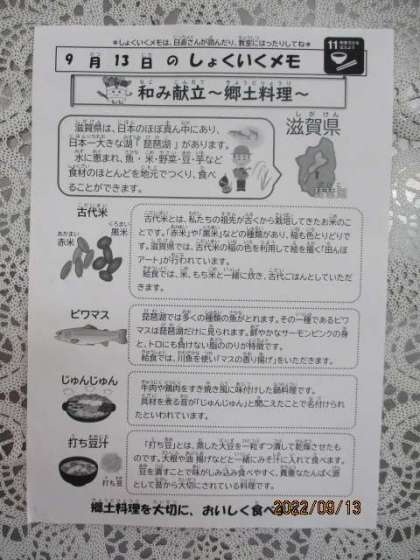 ★しょくいくメモは、日直さんが読んだり、教室にはったりしてね★
9月13日のしょくいくメモ
11
和み献立～郷土料理～
滋賀県は、日本のほぼ真ん中にあり、
日本一大きな湖「琵琶湖」があります。
水に恵まれ、魚・米・野菜・豆・芋など
食材のほとんどを地元でつくり、食べ
ることができます。
しがけん
滋賀県
こだいまい
古代米
あかまい
赤米
くろまい
黒米
古代米とは、私たちの祖先が古くから栽培してきたお米のこ
とです。「赤米」や「黒米」などの種類があり、稲も色とりどりで
す。滋賀県では、古代米の稲の色を利用して絵を描く「田んぼ
アート」が行われています。
給食では、米、もち米と一緒に炊き、古代ごはんとしていただ
きます。
ビワマス
琵琶湖では多くの種類の魚がとれます。その一種であるビワ
マスは琵琶湖だけに見られます。鮮やかなサーモンピンクの身
と、トロにも負けない脂ののりが特徴です。
給食では、川魚を使い「マスの香り揚げ」をいただきます。
じゅんじゅん
牛肉や鶏肉をすき焼き風に味付けした鍋料理です。
具材を煮る音が「じゅんじゅん」と聞こえたことで名付けられ
たといわれています。
打ち豆汁
打ち豆
「打ち豆」とは、蒸した大豆を一粒ずつ潰して乾燥させたも
のです。大根や油揚げなどと一緒にみそ汁に入れて食べます。
豆を潰すことで味がしみ込み食べやすく、貴重なたんぱく源
として昔から大切にされている料理です。
郷土料理を大切に、おいしく食べ
2022/09/13